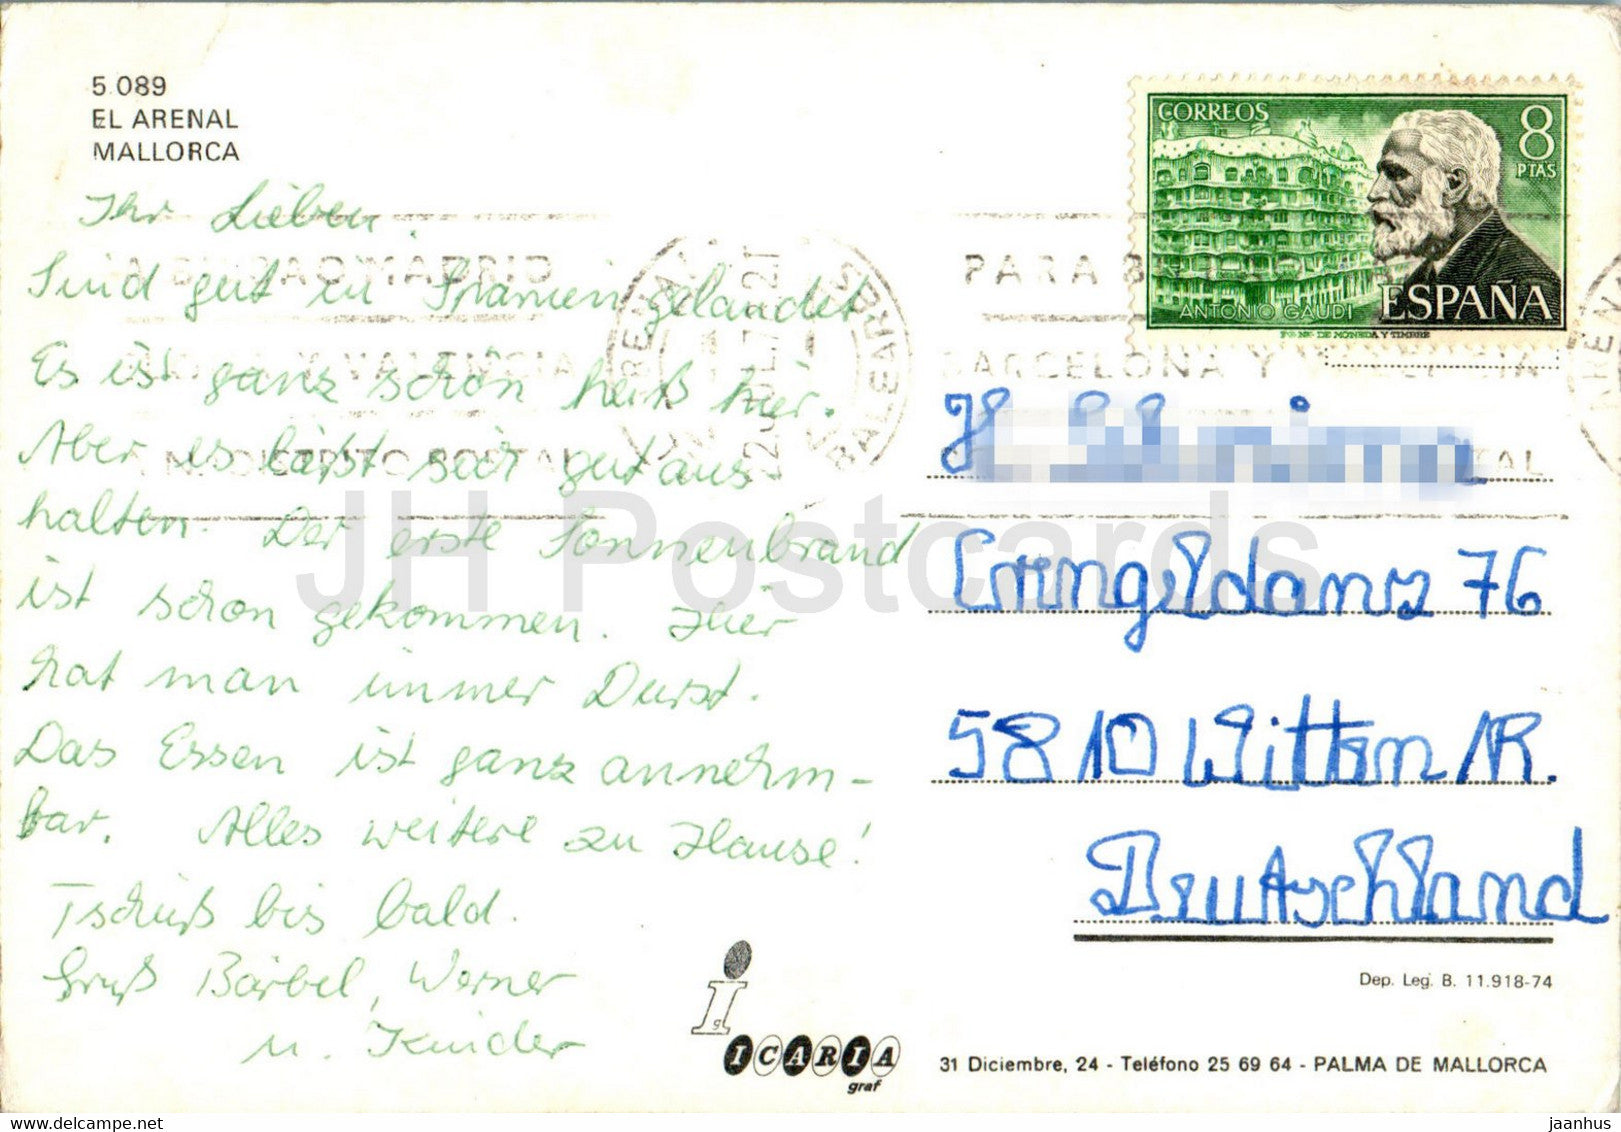 5.089
EL ARENAL
MALLORCA
Ihr Lieben.
Sind gut in Spanien gelandet
Es ist ganz schön heiß hier.
Aber es lässt sich gut aus
halten. Der erste Sonnenbrand
ist schon gekommen. Hier
hat man immer Durst.
Das Essen ist ganz annehm-
bar. Alles weitere zu Hause!
Tschüß bis bald.
Gruß Bärbel, Werner
u. Kinder
CORREOS
8
PTAS
ANTONIO GAUDI
ESPAÑA
F.N. DE MONEDA Y TIMBRE
MADRID
PARA
Y VALENCIA
BARCELONA Y
DISTRITO POSTAL
22 JUL 77
BALEARES
H.
76
5810 Witten /R.
Deutschland
Dep. Leg. B. 11.918-74
ICARIA
graf
31 Diciembre, 24 - Teléfono 25 69 64 - PALMA DE MALLORCA
JH Postcards
jaanhus